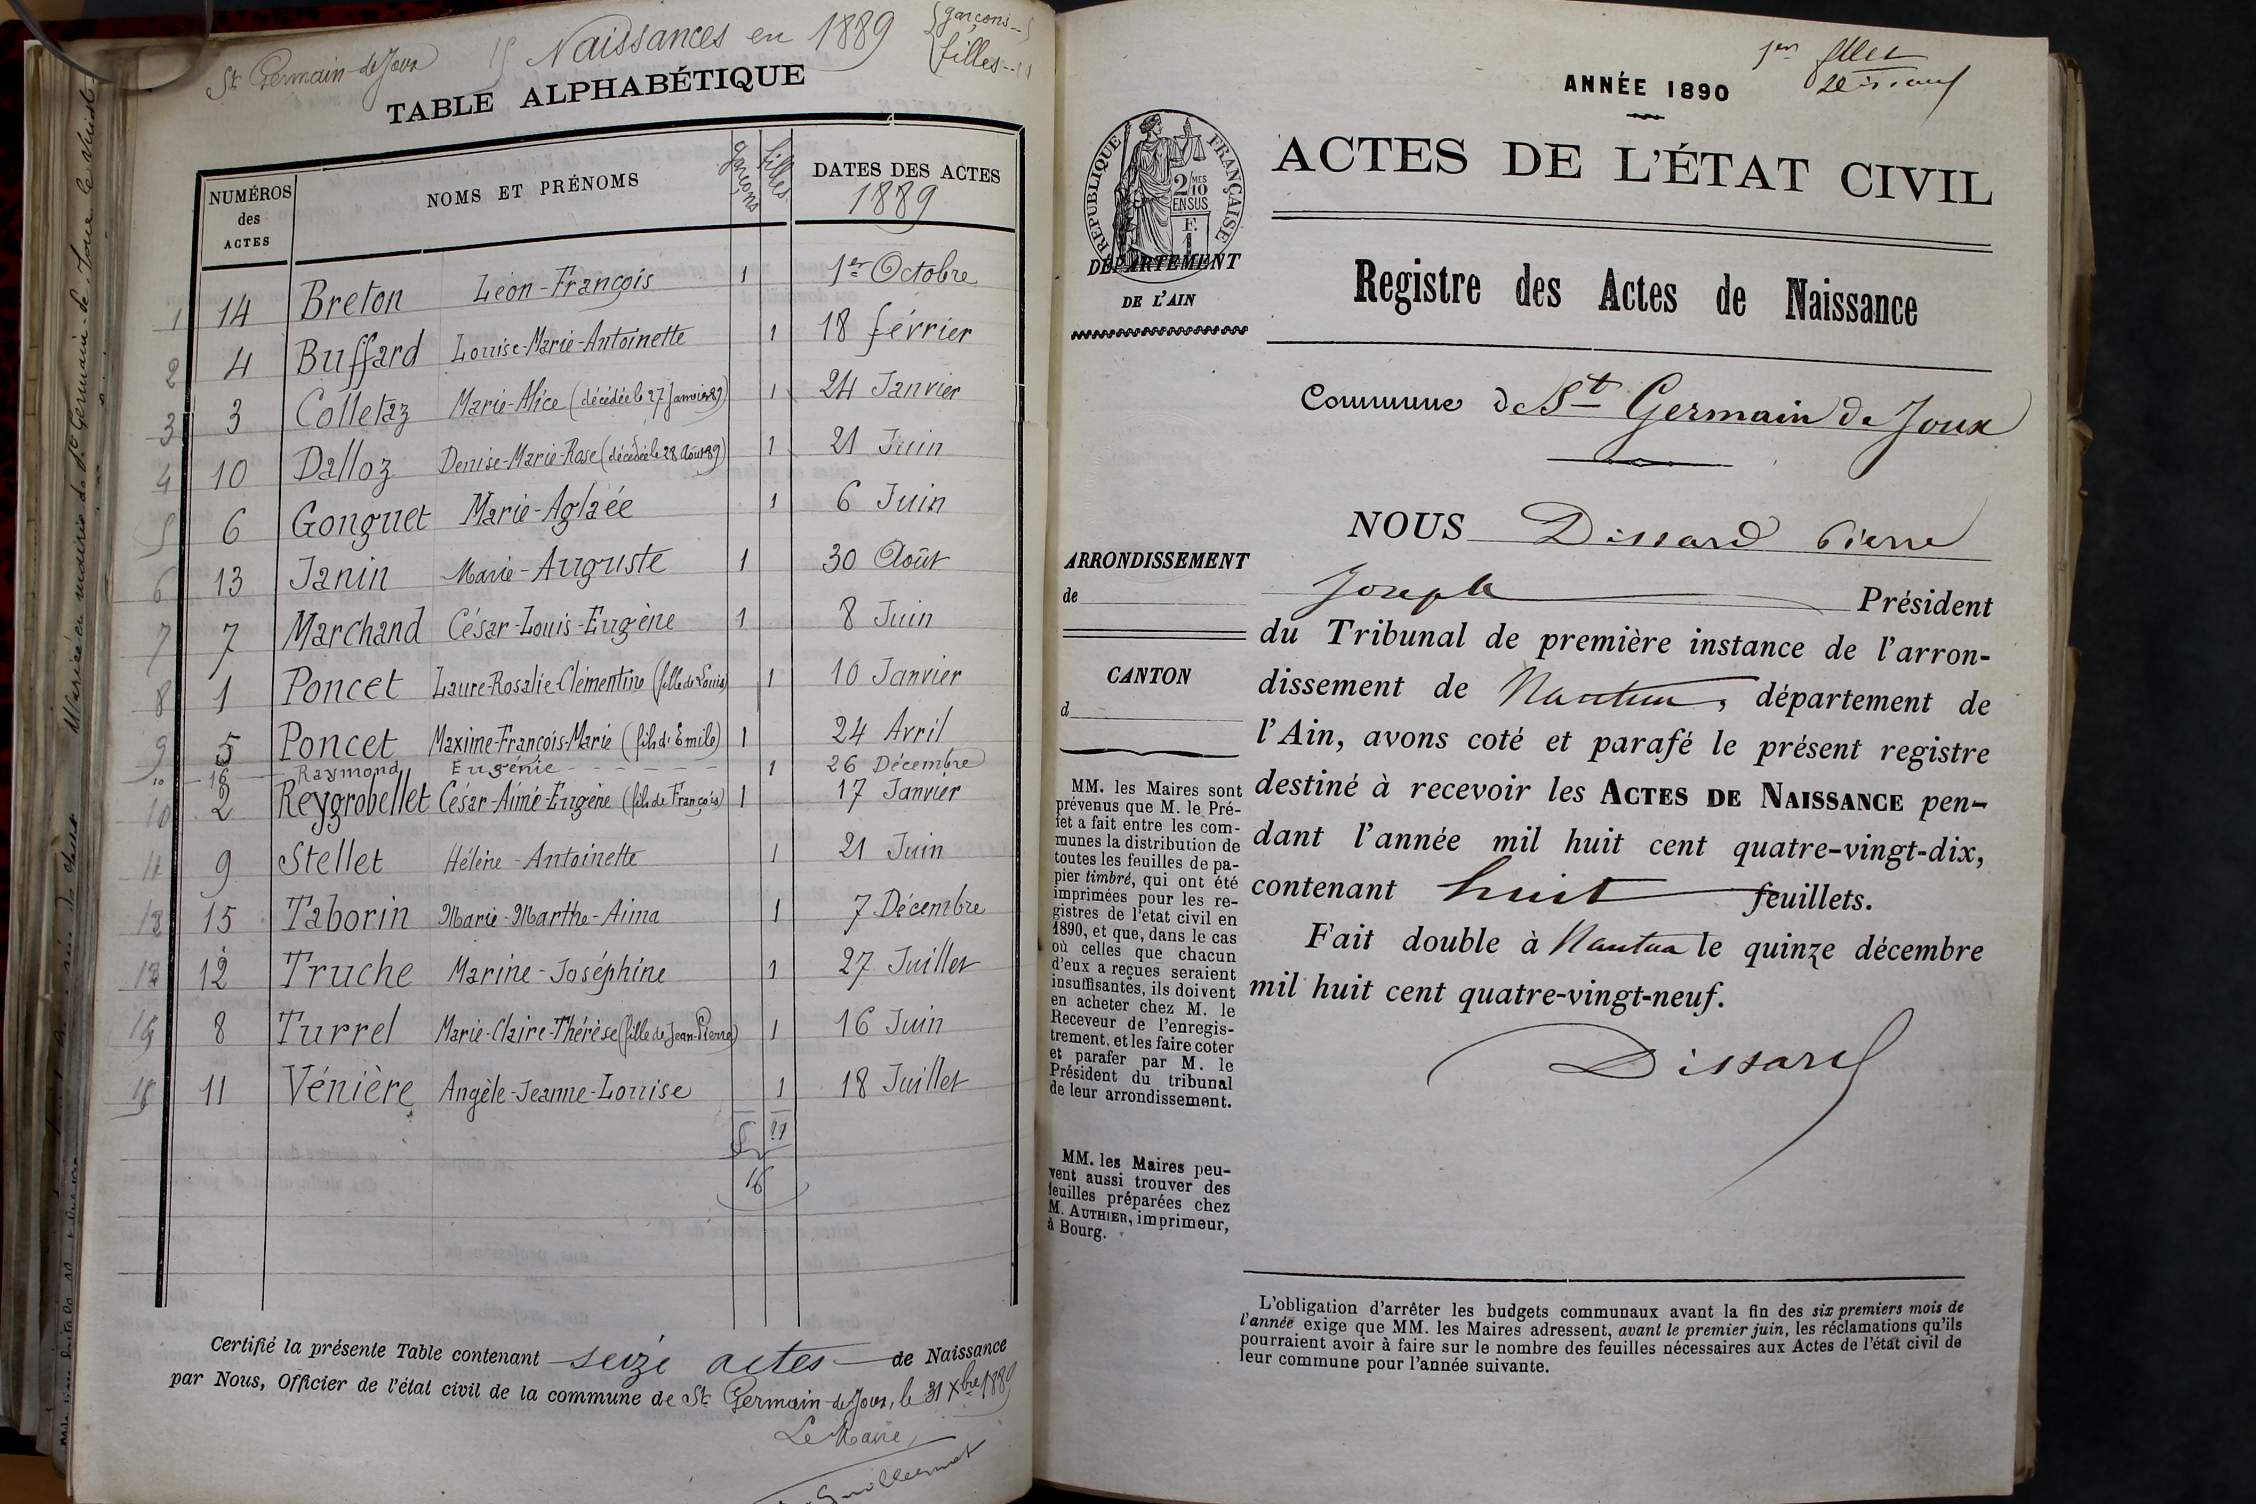 St Germain-de-Joux
Naissances en 1889
garçons
filles
TABLE ALPHABÉTIQUE
NUMÉROS des ACTES NOMS ET PRÉNOMS garçons filles DATES DES ACTES
1889
1 14 Breton Léon-François 1 1er Octobre
2 4 Buffard Louise-Marie-Antoinette 1 18 février
3 3 Colletaz Marie-Alice (décédée le 27 Janvier 89) 1 24 Janvier
4 10 Dalloz Denise-Marie-Rose (décédée le 28 Août 89) 1 21 Juin
5 6 Gonguet Marie-Aglaée 1 6 Juin
6 13 Janin Marie-Auguste 1 30 Août
7 7 Marchand César-Louis-Eugène 1 8 Juin
8 1 Poncet Laure-Rosalie-Clémentine (fille de Louis) 1 10 Janvier
9 5 Poncet Maxime-François-Marie (fils d'Emile) 1 24 Avril
10 16 Raymond Eugénie 1 26 Décembre
10 2 Reygrobellet César-Aimé-Eugène (fils de François) 1 17 Janvier
9 Stellet Hélène-Antoinette 1 21 Juin
15 Taborin Marie-Marthe-Aima 1 7 Décembre
12 Truche Marine-Joséphine 1 27 Juillet
8 Turrel Marie-Claire-Thérèse (fille de Jean-Pierre) 1 16 Juin
11 Vénière Angèle-Jeanne-Louise 1 18 Juillet
5 11
16
Certifié la présente Table contenant seize actes de Naissance
par Nous, Officier de l'état civil de la commune de St Germain-de-Joux, le 31 Xbre 1889
Le Maire,
ANNÉE 1890
ACTES DE L'ÉTAT CIVIL
RÉPUBLIQUE FRANÇAISE
2/10 MES
EN SUS
F.
1
DÉPARTEMENT
DE L'AIN
Registre des Actes de Naissance
Commune de St Germain de Joux
NOUS Dissard Pierre
Joseph Président
du Tribunal de première instance de l'arron-
dissement de Nantua, département de
l'Ain, avons coté et parafé le présent registre
destiné à recevoir les ACTES DE NAISSANCE pen-
dant l'année mil huit cent quatre-vingt-dix,
contenant huit feuillets.
Fait double à Nantua le quinze décembre
mil huit cent quatre-vingt-neuf.
Dissard
ARRONDISSEMENT
de
CANTON
d
MM. les Maires sont
prévenus que M. le Pré-
fet a fait entre les com-
munes la distribution de
toutes les feuilles de pa-
pier timbré, qui ont été
imprimées pour les re-
gistres de l'etat civil en
1890, et que, dans le cas
où celles que chacun
d'eux a reçues seraient
insuffisantes, ils doivent
en acheter chez M. le
Receveur de l'enregis-
trement, et les faire coter
et parafer par M. le
Président du tribunal
de leur arrondissement.
MM. les Maires peu-
vent aussi trouver des
feuilles préparées chez
M. AUTHIER, imprimeur,
à Bourg.
L'obligation d'arrêter les budgets communaux avant la fin des six premiers mois de
l'année exige que MM. les Maires adressent, avant le premier juin, les réclamations qu'ils
pourraient avoir à faire sur le nombre des feuilles nécessaires aux Actes de l'état civil de
leur commune pour l'année suivante.